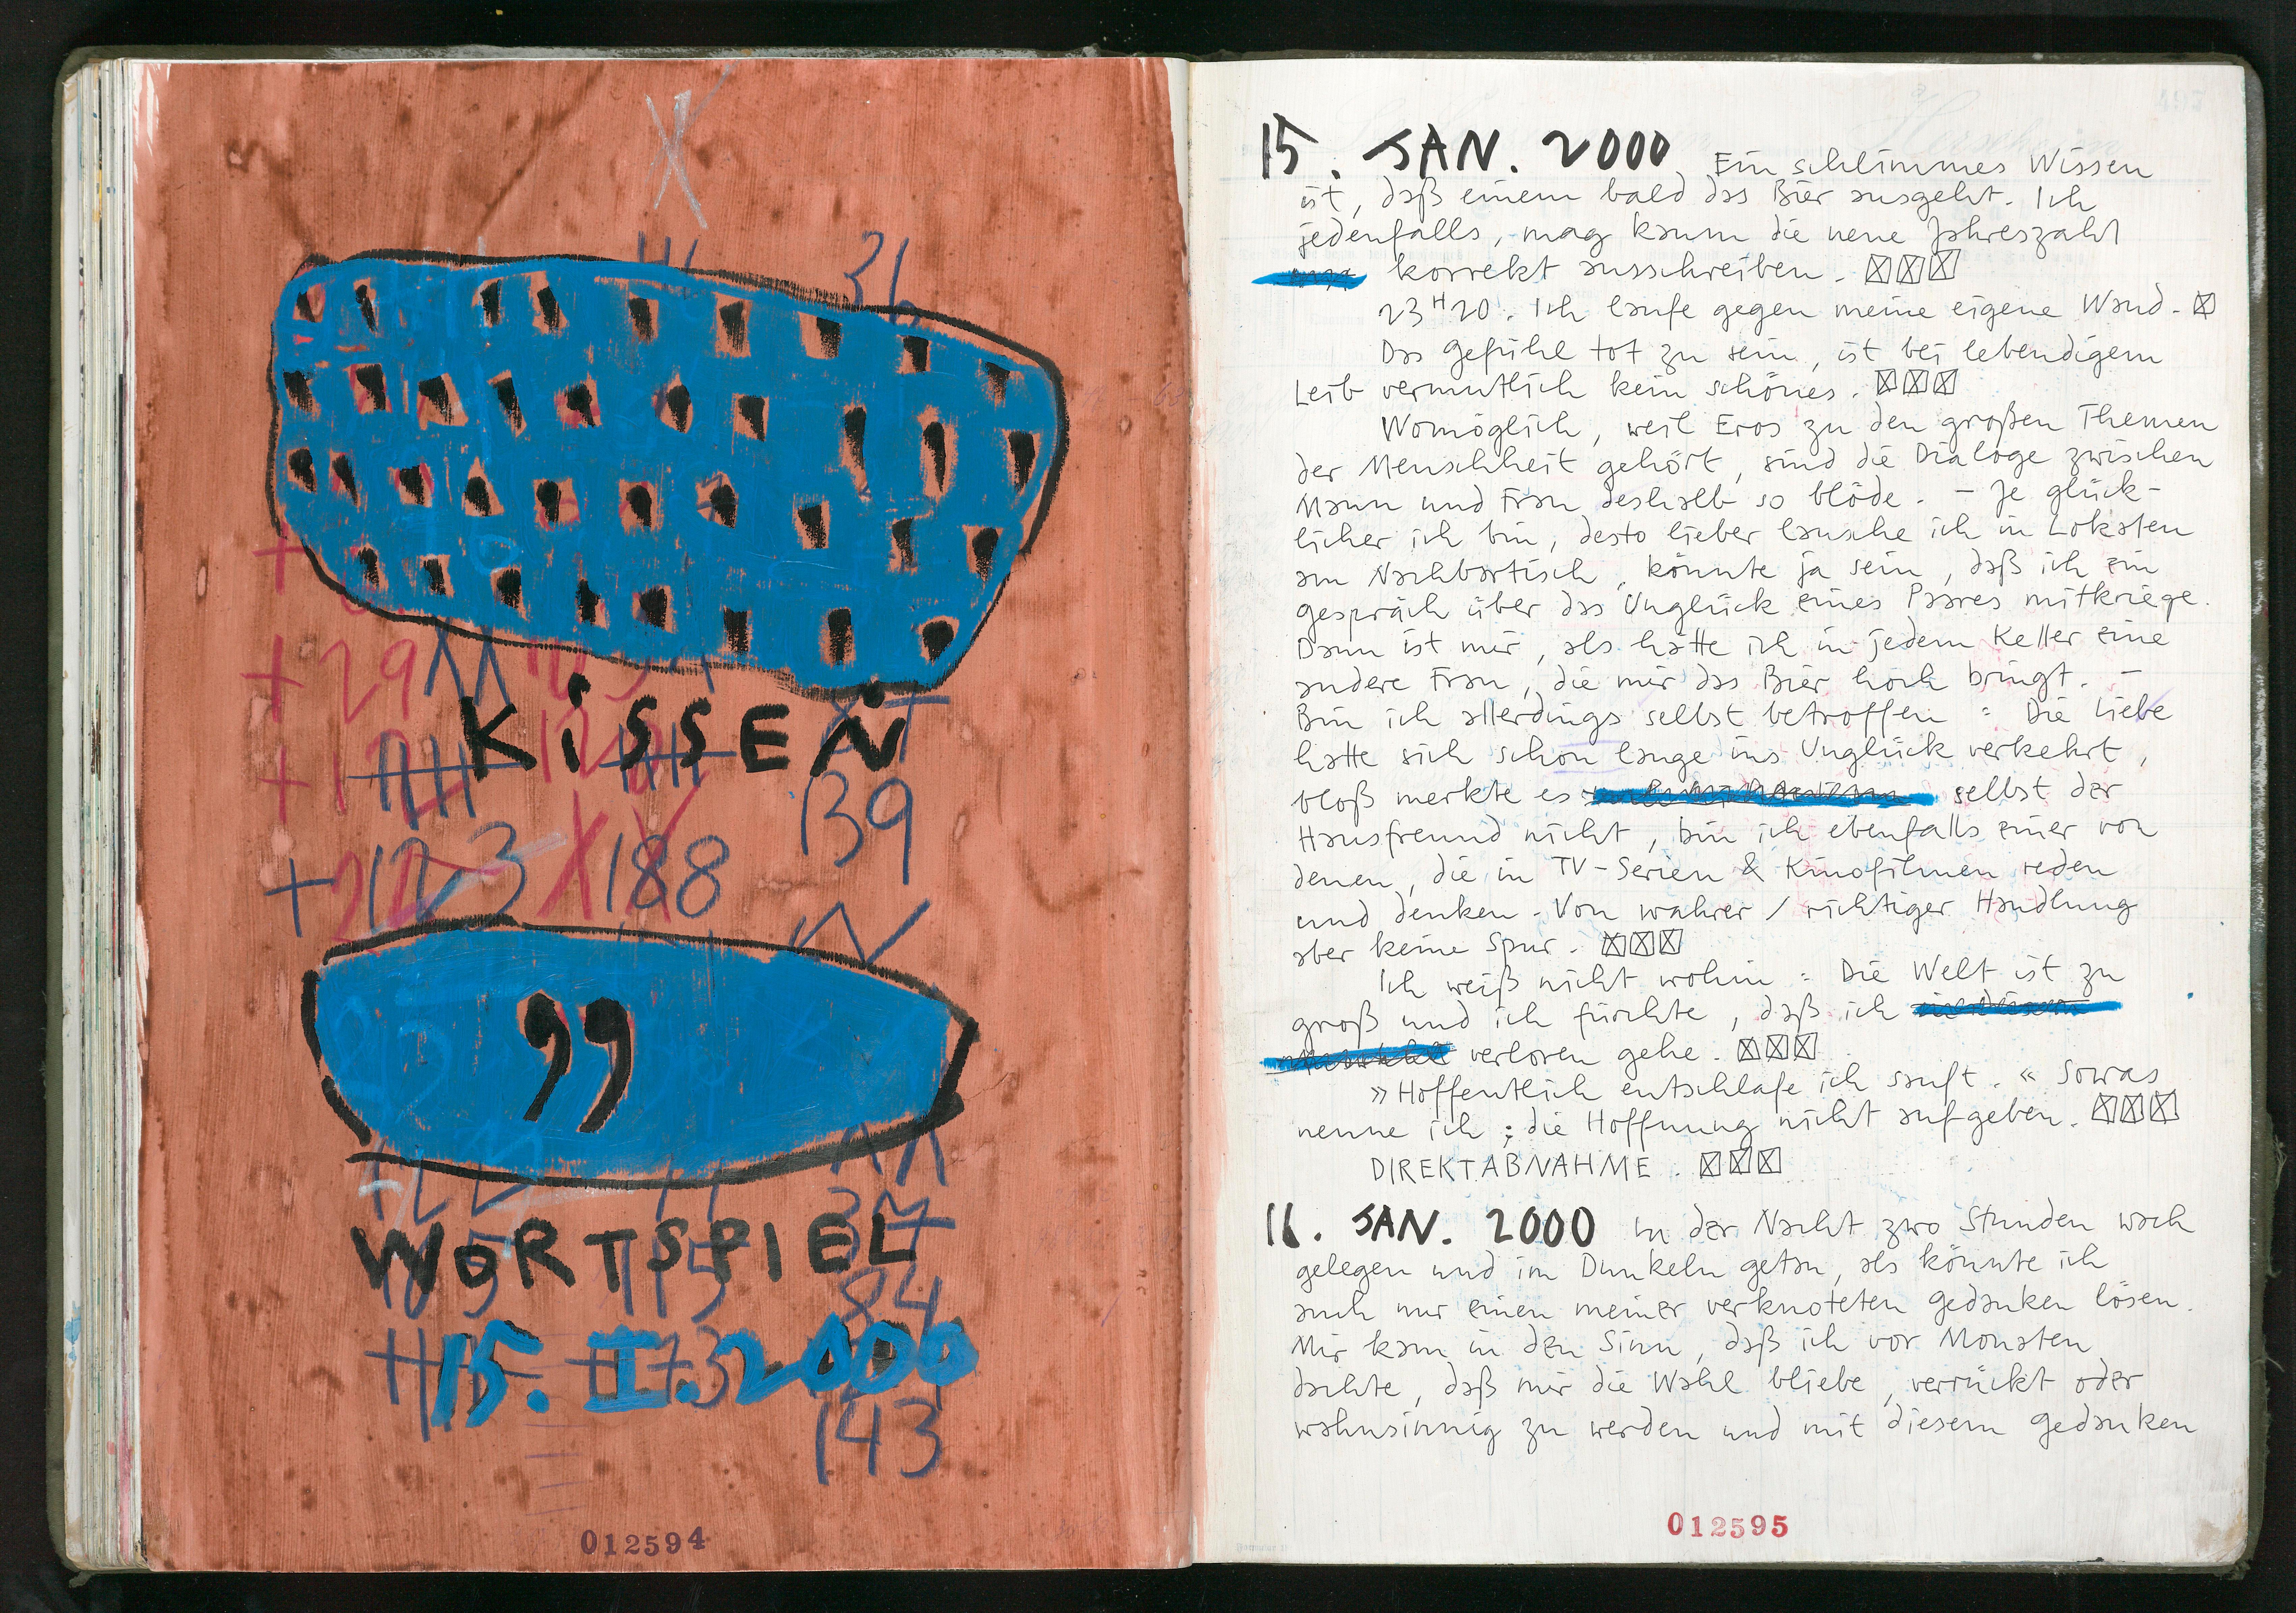 31
+29
KiSSEN
139
+123 188
"
WORTSPIEL
115 84
15. I. 2000
143
012594
15. JAN. 2000 Ein schlimmes Wissen
ist, daß einem bald das Bier ausgeht. Ich
jedenfalls, mag kaum die neue Jahreszahl
korrekt ausschreiben. ☒☒☒
23H20. Ich laufe gegen meine eigene Wand. ☒
Das Gefühl tot zu sein, ist bei lebendigem
Leib vermutlich kein schönes. ☒☒☒
Womöglich, weil Eros zu den großen Themen
der Menschheit gehört, sind die Dialoge zwischen
Mann und Frau deshalb so blöde. – Je glück-
licher ich bin, desto lieber lausche ich in Lokalen
am Nachbartisch, könnte ja sein, daß ich ein
Gespräch über das Unglück eines Paares mitkriege.
Dann ist mir, als hätte ich in jedem Keller eine
andere Frau, die mir das Bier hoch bringt. –
Bin ich allerdings selbst betroffen : Die Liebe
hatte sich schon lange ins Unglück verkehrt,
bloß merkte es selbst der
Hausfreund nicht, bin ich ebenfalls einer von
denen, die in TV-Serien & Kinofilmen reden
und denken. Von wahrer / richtiger Handlung
aber keine Spur. ☒☒☒
Ich weiß nicht wohin : Die Welt ist zu
groß und ich fürchte, daß ich
verloren gehe. ☒☒☒
»Hoffentlich entschlafe ich sanft.« Sowas
nenne ich : die Hoffnung nicht aufgeben. ☒☒☒
DIREKTABNAHME. ☒☒☒
16. JAN. 2000 In der Nacht zwo Stunden wach
gelegen und im Dunkeln getan, als könnte ich
auch nur einen meiner verknoteten Gedanken lösen.
Mir kam in den Sinn, daß ich vor Monaten
dachte, daß mir die Wahl bliebe, verrückt oder
wahnsinnig zu werden und mit diesem Gedanken
012595